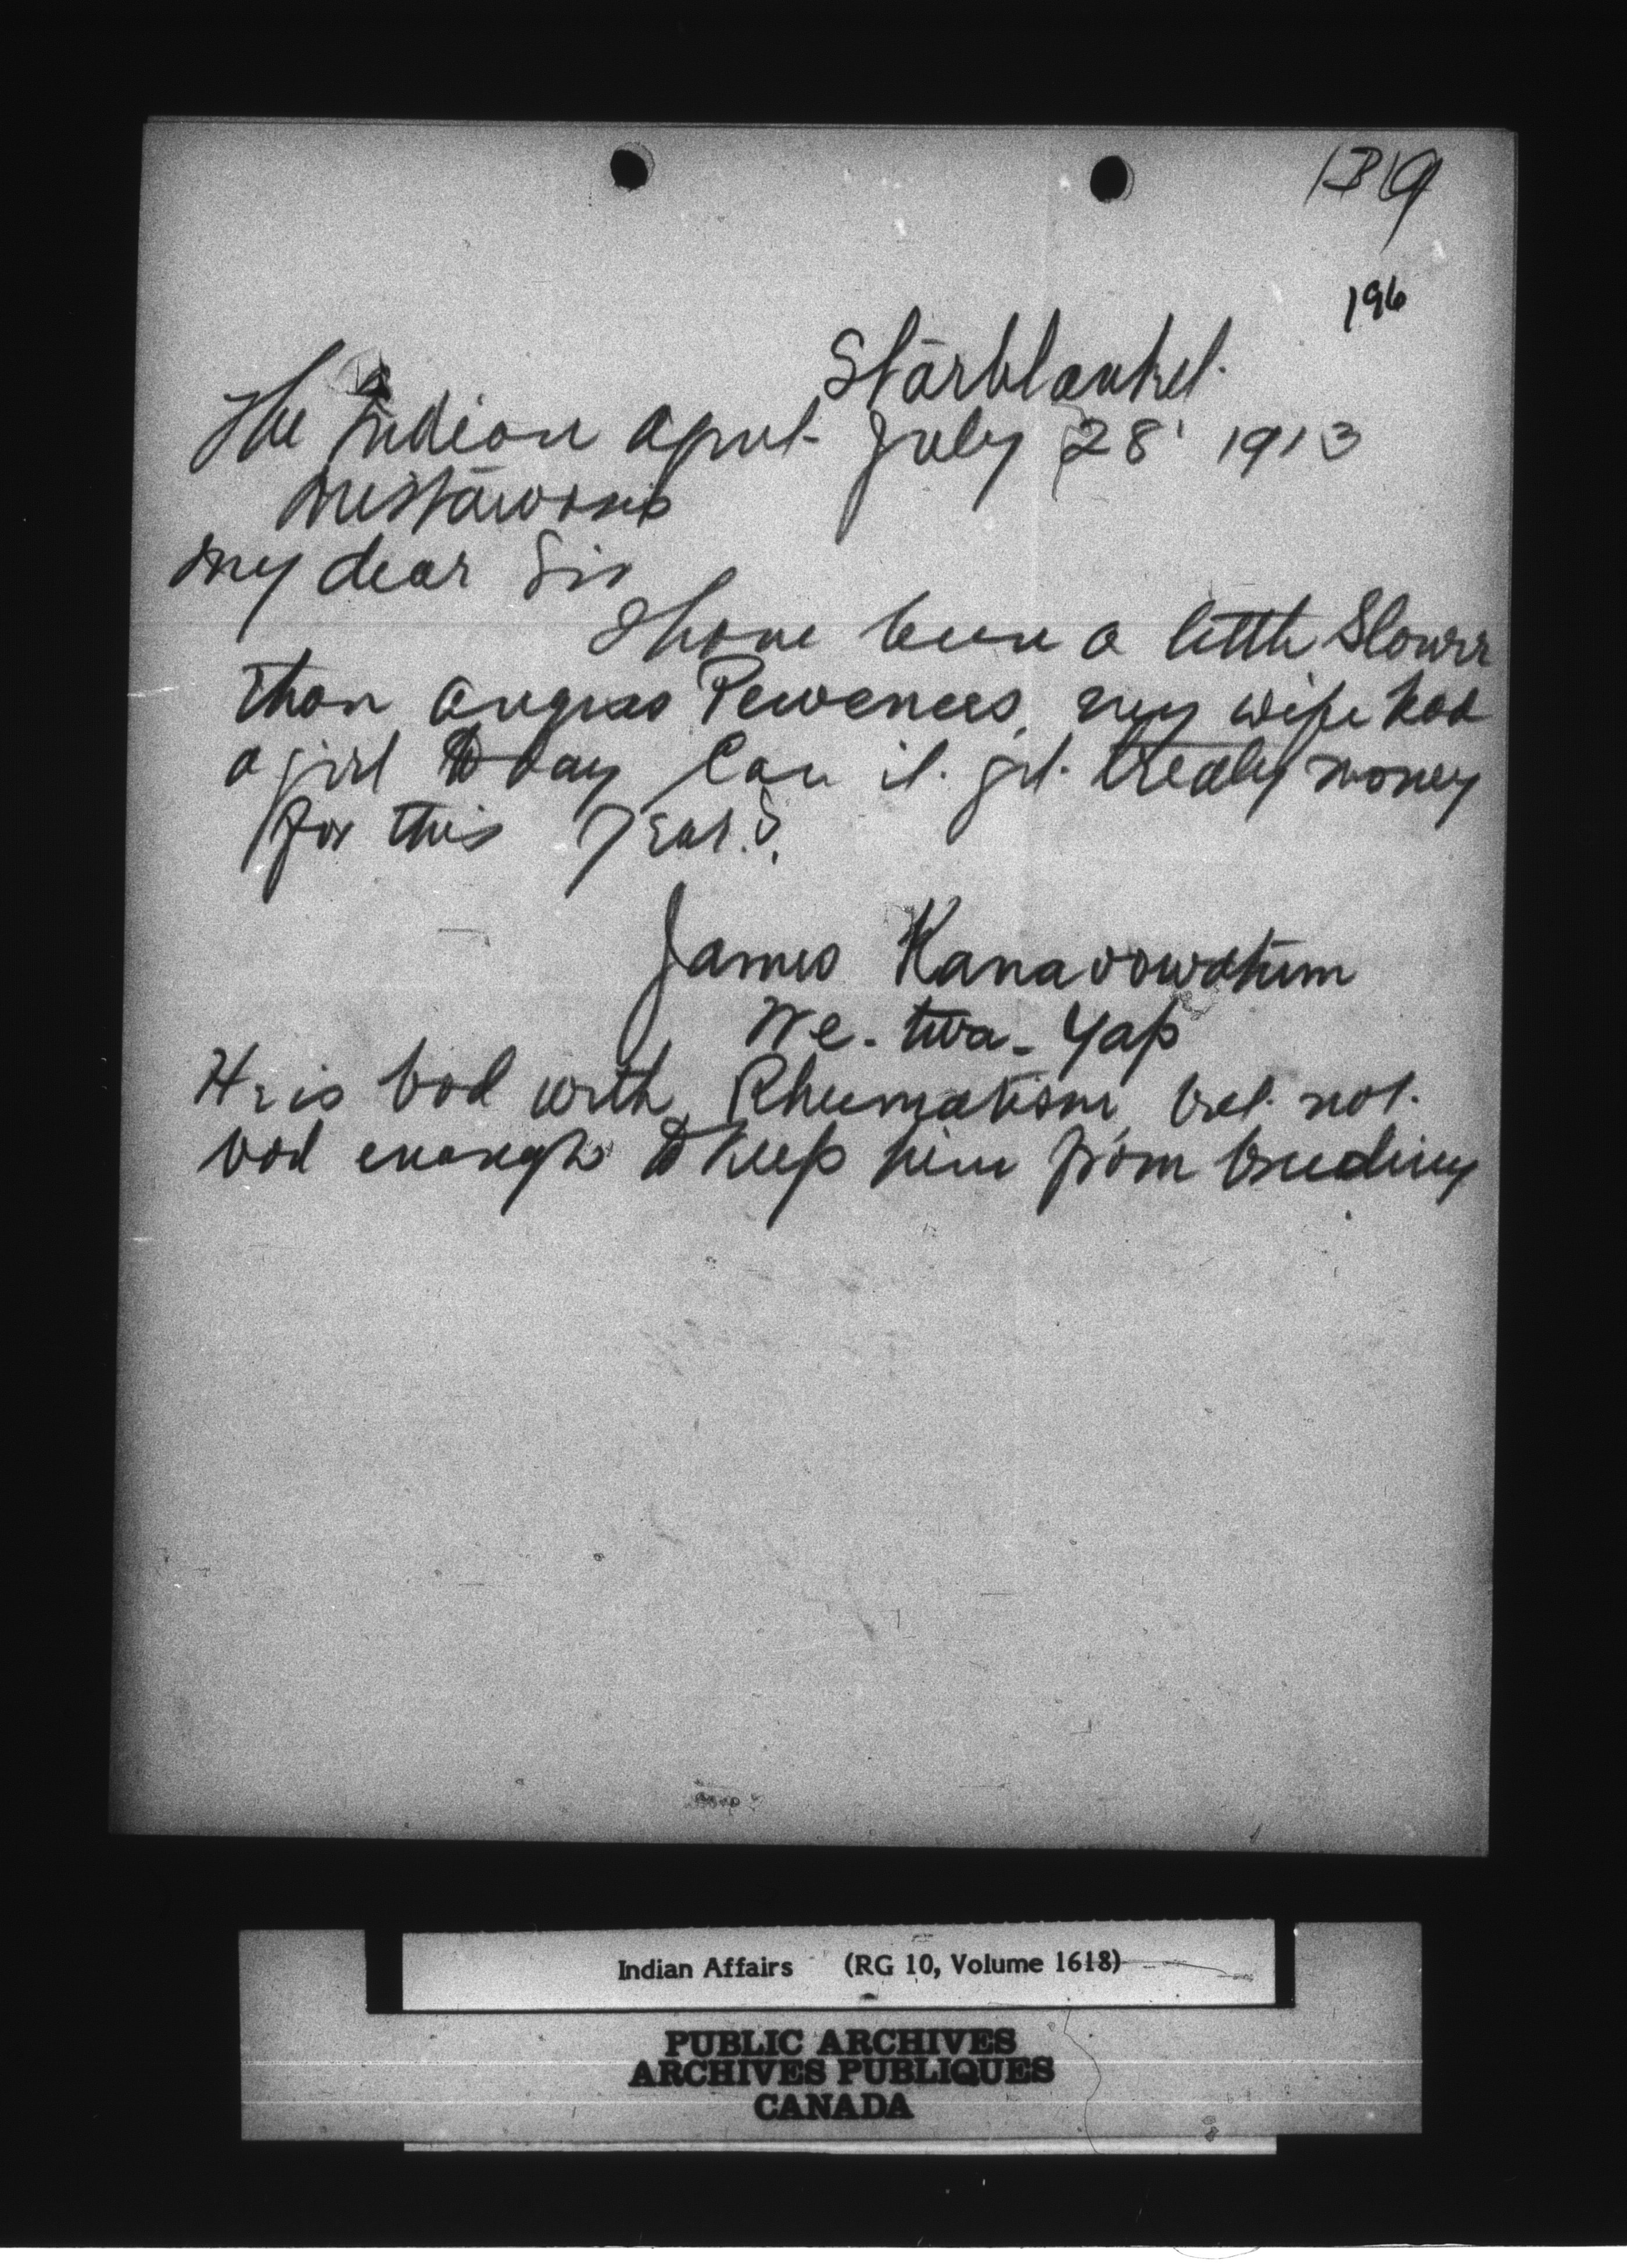 139
196
Starblanket.
The Indian Agent July 28' 1913
Mistawasis
My dear Sir
I have been a little Slower
than Angus Peweenees, my wife had
a girl to day Can it get treaty money
for this year?
James Kanaoowatum
We-twa-Yap
He is bad with Rheumatism but not
bad enough to keep him from breeding
Indian Affairs (RG 10, Volume 1618)
PUBLIC ARCHIVES
ARCHIVES PUBLIQUES
CANADA